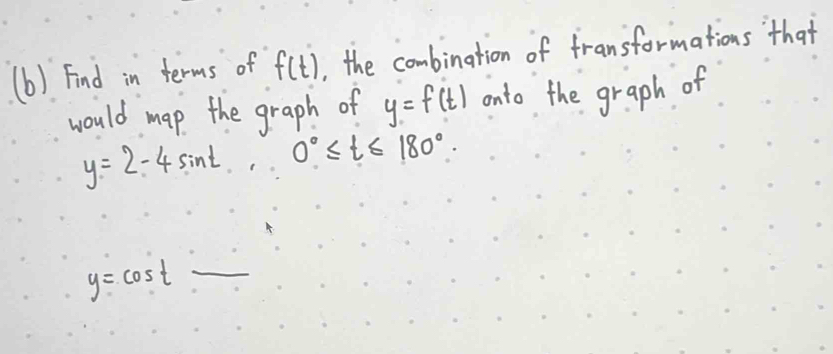 (b) Find in terms of f(t), the combination of transformations that
would map the graph of y = f(t) onto the graph of
y = 2 - 4 sint , 0° ≤ t ≤ 180°.
y = cost —